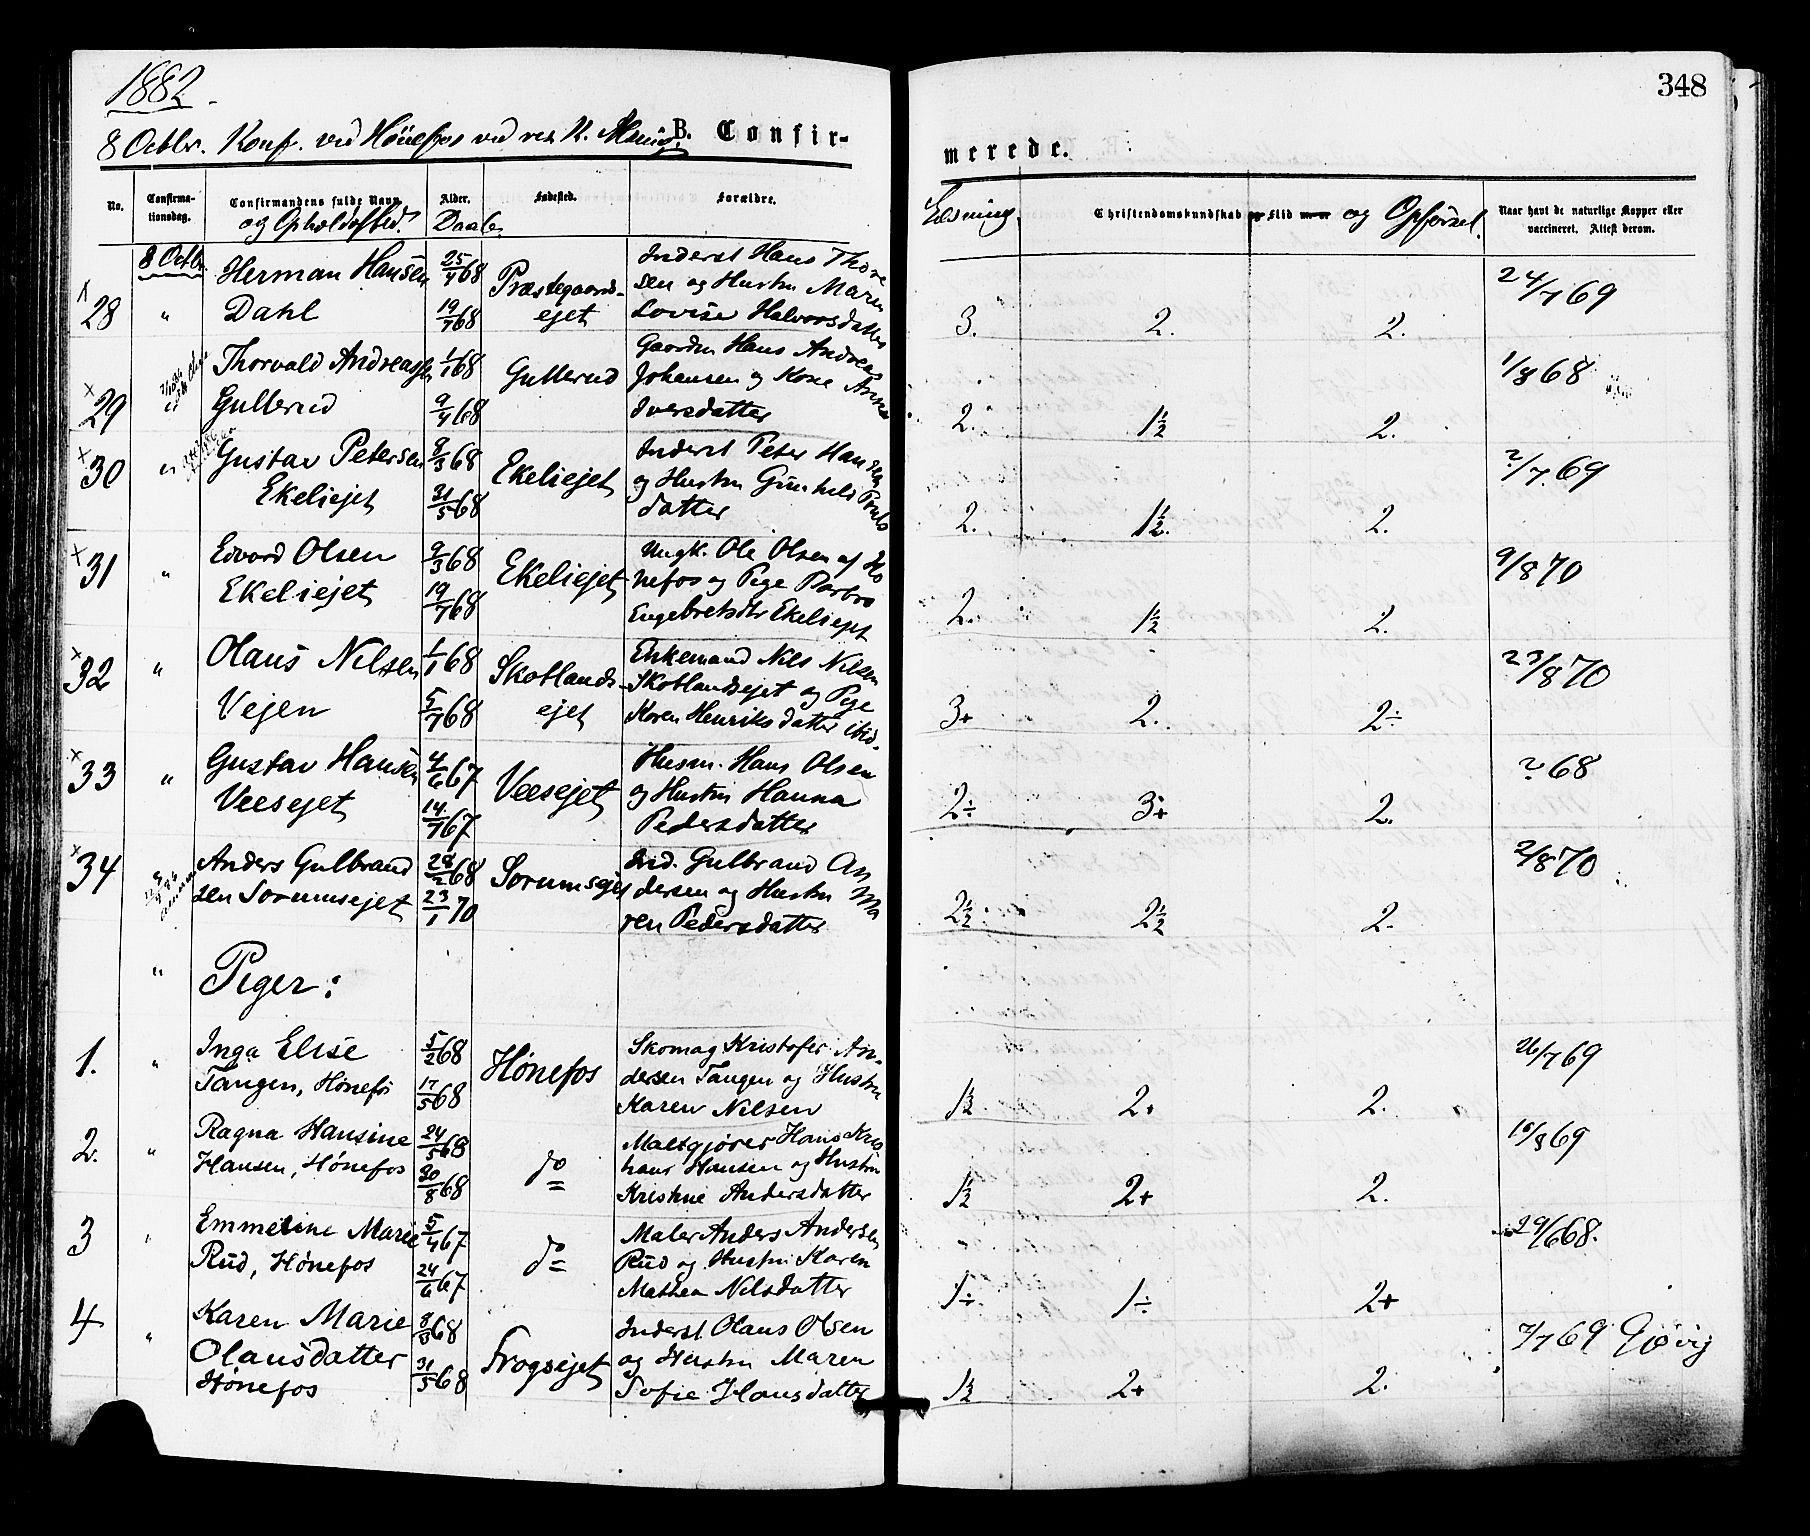 1882.
348
8 Octbr. Konf. ved Hönefos ved res. K.
B. Confir-
merede.
No.
Confirma-
tionsdag.
Confirmandens fulde Navn
og Opholdssted.
Alder.
Daab.
Fødested.
Forældre.
Læsning.
Christendomskundskab og Flid og Opførsel.
Naar havt de naturlige Kopper eller
vaccineret. Attest derom.
8 Octbr.
28
"
Herman Hansen
Dahl
25/4 68
19/7 68
Præstegaards-
ejet
Inderst Hans Thore
sen og Hustru Maren
Lovise Halvorsdatter
3.
2.
2.
24/7 69
29
"
Thorvald Andreassen
Gullerud
1/1 68
9/4 68
Gullerud
Gaardm. Hans Andreas
Johansen og Kone Anna
Iversdatter
2.
1½
2.
1/8 68
30
"
Gustav Petersen
Ekeliejet
8/3 68
31/5 68
Ekeliejet
Inderst Peter Hansen
og Hustru Gunhild Pauls
datter
2.
1½.
2.
?/7 69
31
"
Edvard Olsen
Ekeliejet
9/3 68
19/7 68
Ekeliejet
Ungk. Ole Olsen af Hø
nefos og Pige Barbro
Engebretsdtr Ekeliejet
2.
1½
2.
9/8 70
32
"
Olaus Nilsen
Vejen
1/1 68
5/7 68
Skotlands-
ejet
Enkemand Nils Nilsen
Skotlandsejet og Pige
Karen Henriksdatter ibid.
3+
2.
2÷
23/8 70
33
"
Gustav Hansen
Veesejet
4/6 67
14/7 67
Veesejet
Husm. Hans Olsen
og Hustru Hanna
Pedersdatter
2÷
3+
2.
? 68
34
Anders Gulbrand
sen Sorumsejet
28/2 68
23/1 70
Sorumsejet
Ind. Gulbrand An
dersen og Hustru Ma
ren Pedersdatter
2½
2½
2.
2/8 70
"
Piger:
1.
"
Inga Elise
Tangen, Hønefos
5/2 68
17/5 68
Hønefos
Skomag Kristofer An-
dersen Tangen og Hustru
Karen Nilsen
1½
2+
2.
26/7 69
2.
"
Ragna Hansine
Hansen, Hønefos
24/5 68
30/8 68
do
Maltgjører Hans Kris
tians Hansen og Hustru
Kristine Andersdatter
1½
2+
2.
16/8 69
3
"
Emmeline Marie
Rud, Hønefos
5/4 67
24/6 67
do
Maler Anders Andersen
Rud og Hustru Karen
Mathea Nilsdatter
1÷
1÷
2+
29/6 68.
4
"
Karen Marie
Olausdatter
Hønefos
8/3 68
31/5 68
Frogsejet
Inderst Olaus Olsen
og Hustru Maren
Sofie Hansdatter
1½
2+
2.
7/7 69 Gjøvig